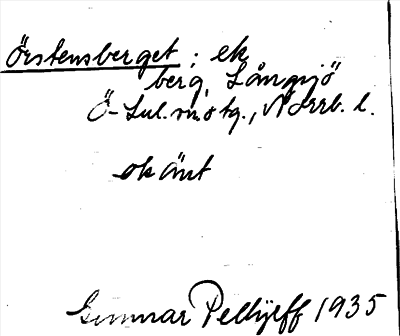 Örstensberget: ek
berg, Långsjö
Ö-Lul. sn o tg., Norrb. l.
okänt
Gunnar Pellijeff 1935